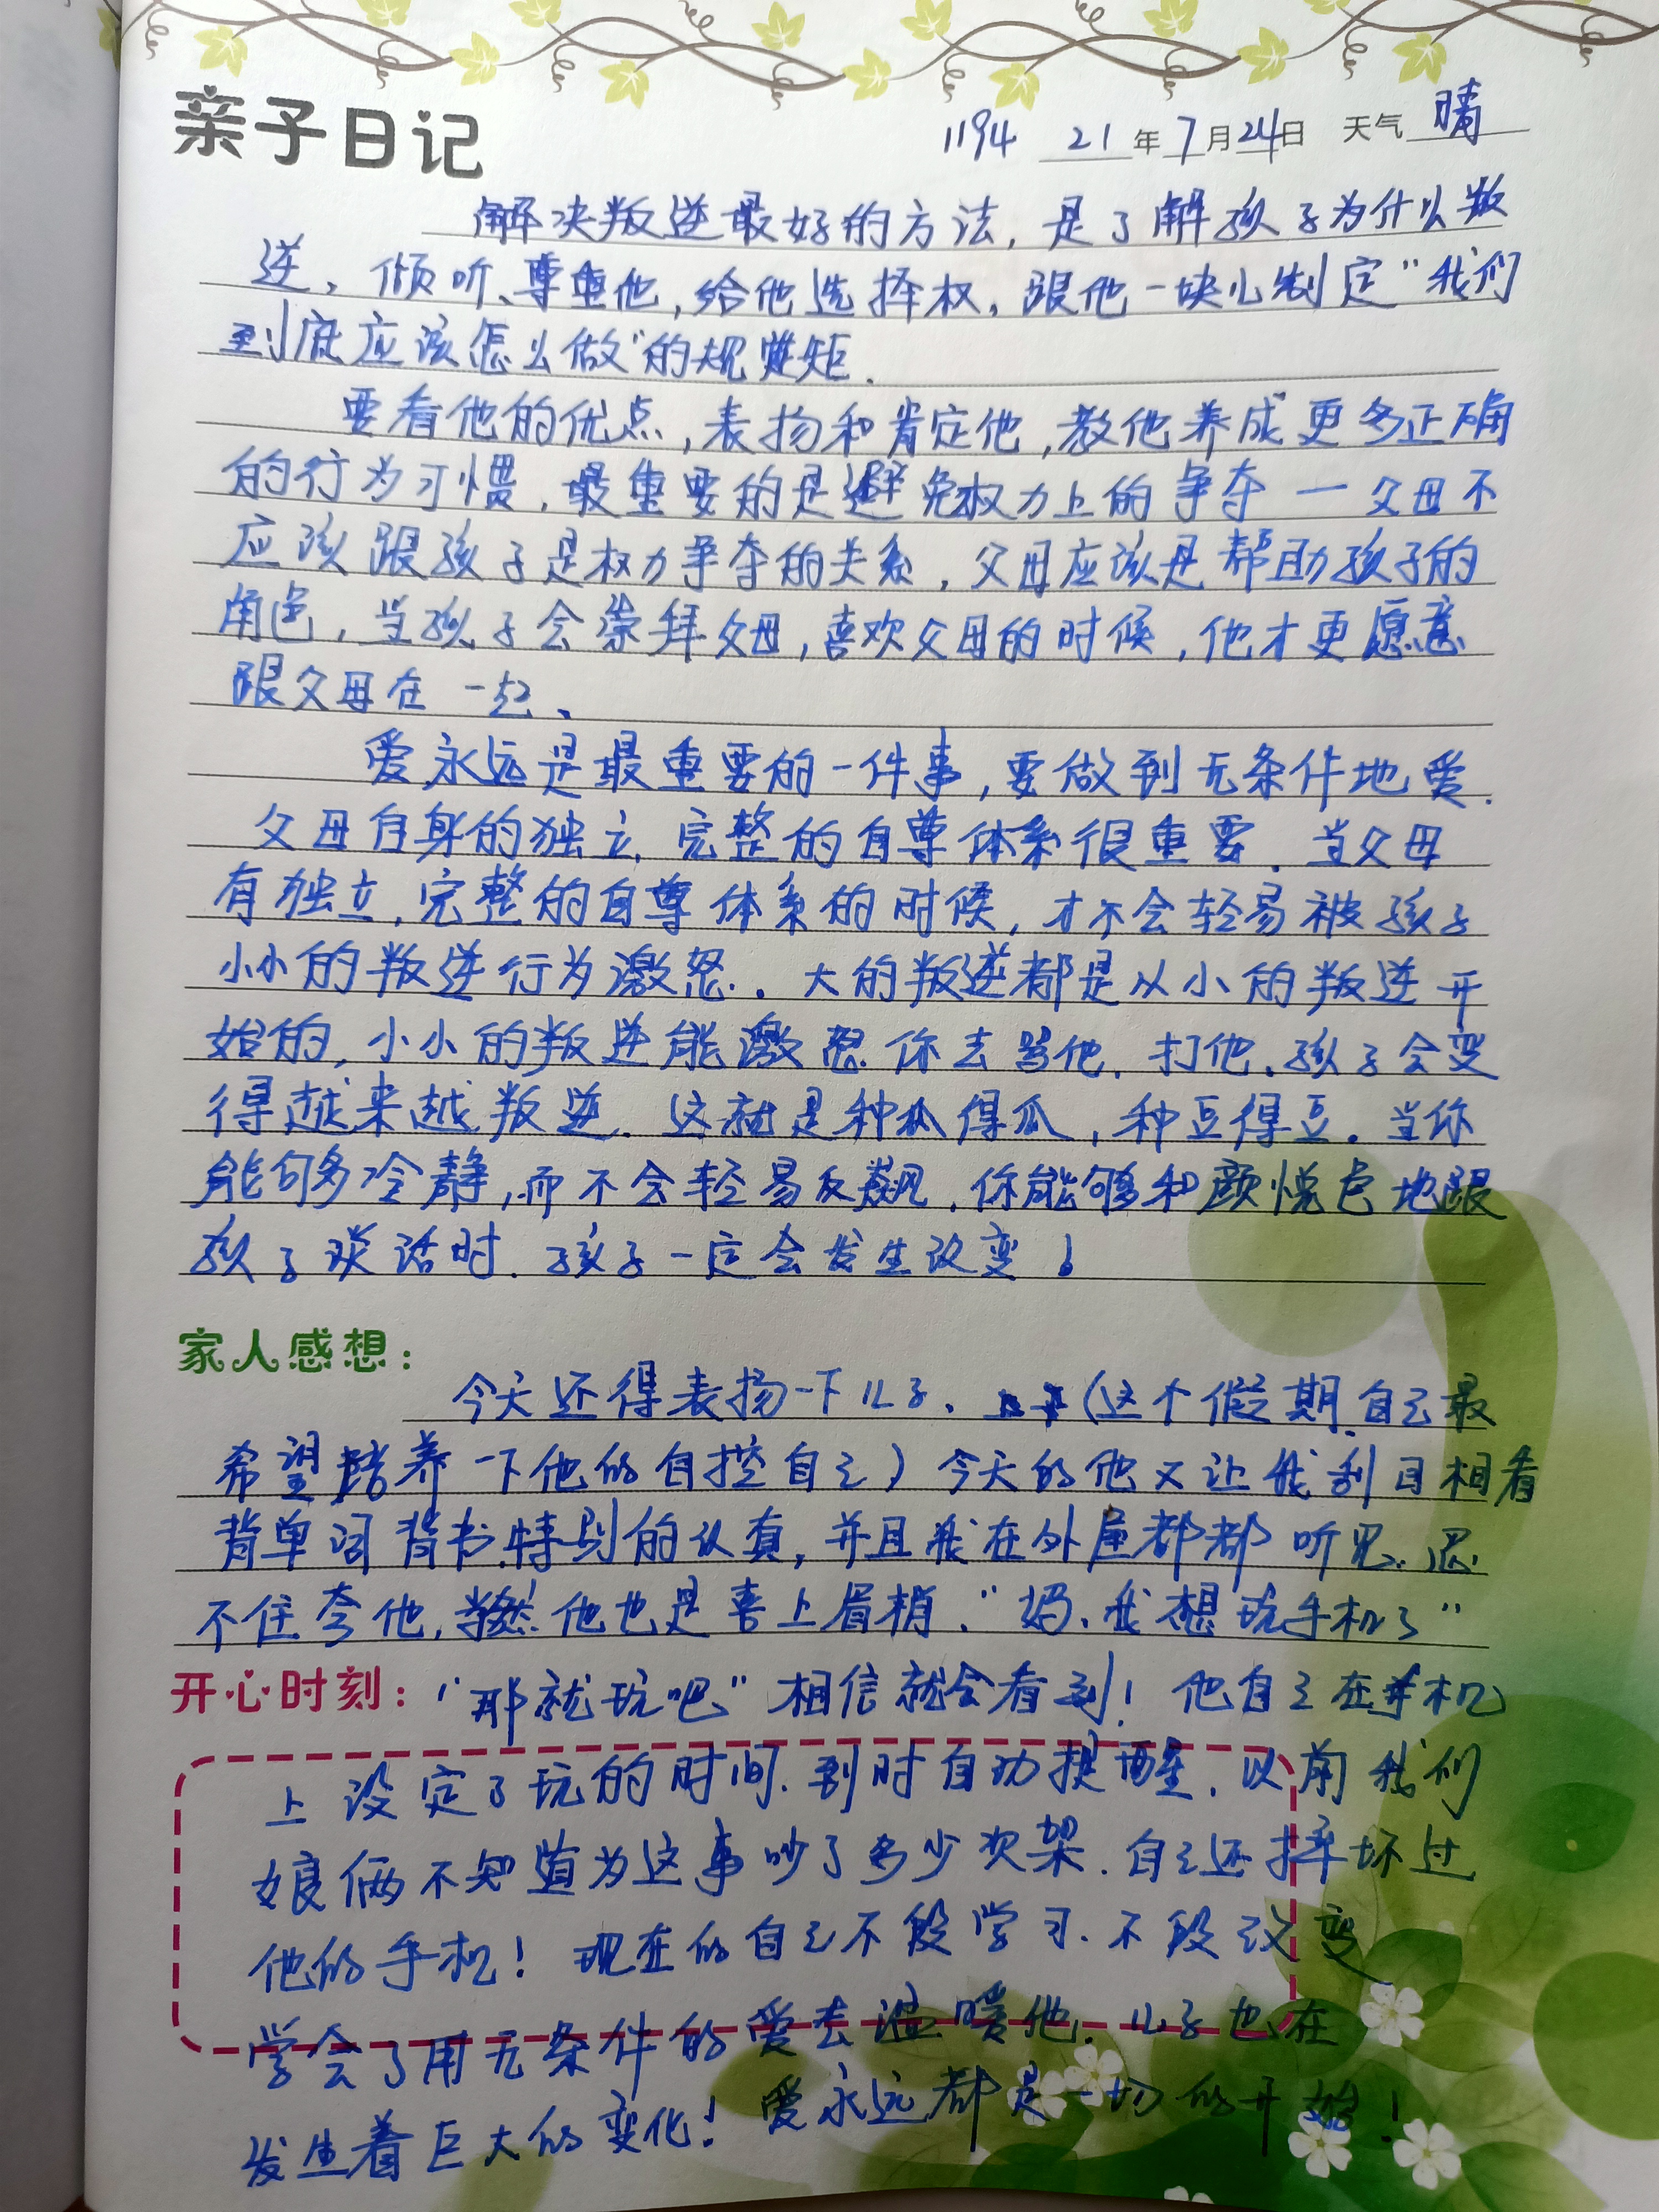 亲子日记
1194 21年7月24日 天气 晴
解决叛逆最好的方法，是了解孩子为什么叛
逆，倾听、尊重他，给他选择权，跟他一块儿制定“我们
到底应该怎么做”的规矩．
要看他的优点，表扬和肯定他，教他养成更多正确
的行为习惯，最重要的是避免权力上的争夺一父母不
应该跟孩子是权力争夺的关系，父母应该是帮助孩子的
角色，当孩子会崇拜父母，喜欢父母的时候，他才更愿意
跟父母在一起、
爱永远是最重要的一件事，要做到无条件地爱．
父母自身的独立，完整的自尊体系很重要．当父母
有独立，完整的自尊体系的时候，才不会轻易被孩子
小小的叛逆行为激怒．大的叛逆都是从小的叛逆开
始的，小小的叛逆能激怒你去骂他．打他．孩子会变
得越来越叛逆．这就是种瓜得瓜，种豆得豆．当你
能够冷静，而不会轻易反飙，你能够和颜悦色地跟
孩子谈话时．孩子一定会发生改变！
家人感想：
今天还得表扬一下儿子．（这个假期自己最
希望培养一下他的自控自己）今天的他又让我刮目相看
背单词背书特别的认真，并且我在外屋都都听见．忍
不住夸他，当然他也是喜上眉梢．“妈、我想玩手机了”
开心时刻：“那就玩吧”相信就会看到！他自己在手机
上设定了玩的时间．到时自动提醒．以前我们
娘俩不知道为这事吵了多少次架．自己还摔坏过
他的手机！现在的自己不段学习．不段改变
学会了用无条件的爱去温暖他．儿子也在
发生着巨大的变化！爱永远都是一切的开始！